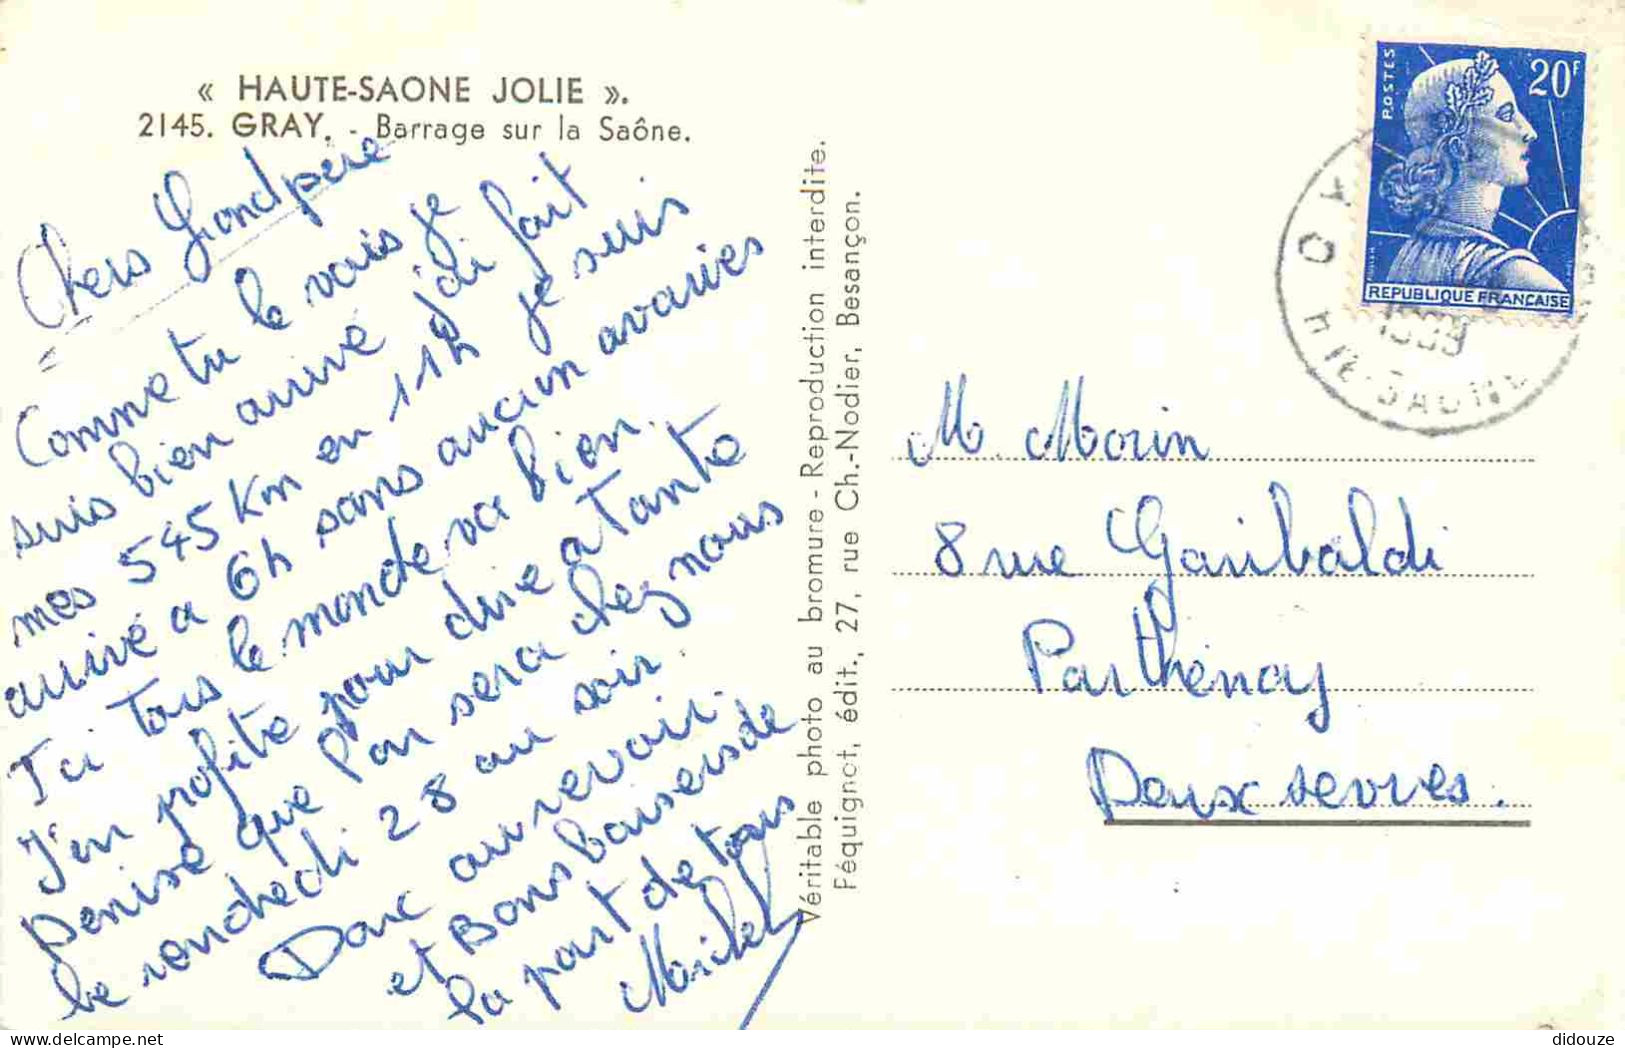 « HAUTE-SAONE JOLIE ».
2145. GRAY. - Barrage sur la Saône.
Chers Grandpère
Comme tu le vois je
suis bien arrivé j'ai fait
mes 545 Km en 11h je suis
arrivé a 6h sans aucun avaries
Ici tous le monde va bien.
J'en profite pour dire a tante
Denise que l'on sera chez nous
le vendredi 28 au soir.
Donc au revoir.
et Bons baisers de
la part de tous
Michel
Véritable photo au bromure - Reproduction interdite.
Féquignot, édit., 27, rue Ch.-Nodier, Besançon.
POSTES
20F
REPUBLIQUE FRANÇAISE
1959
HTE-SAONE
M. Morin
8 rue Garibaldi
Parthenay
Deux sevres.
didouze